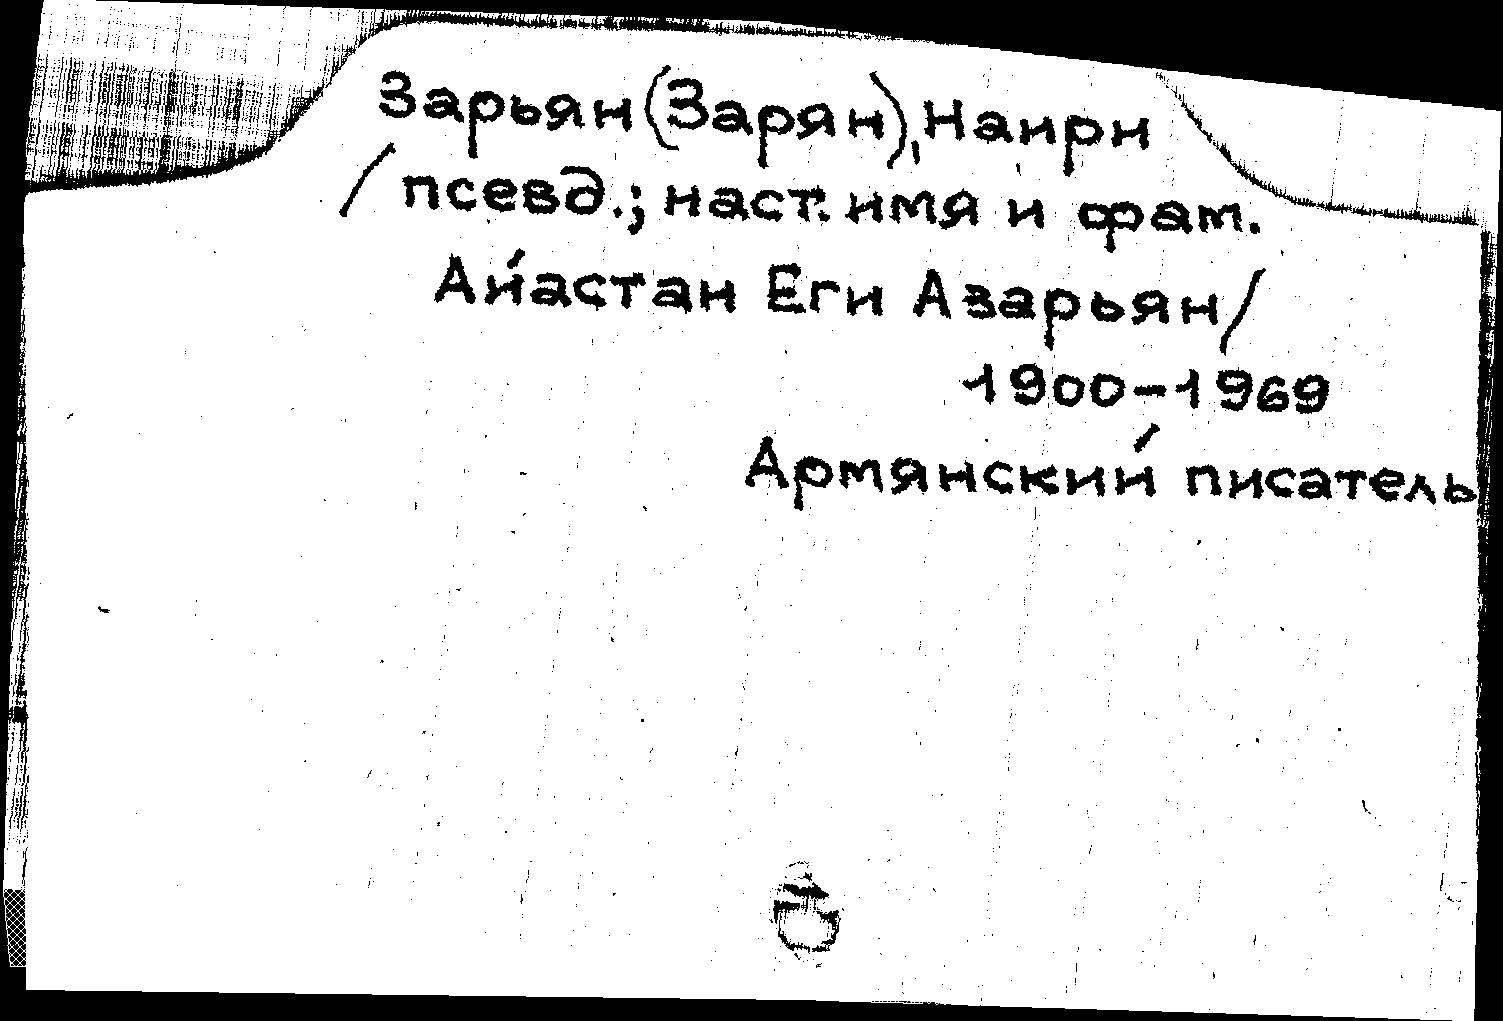 Зарьян (Зарян), Наири
/псевд.; наст. имя и фам.
Айастан Еги Азарьян/
1900-1969
Армянский писатель